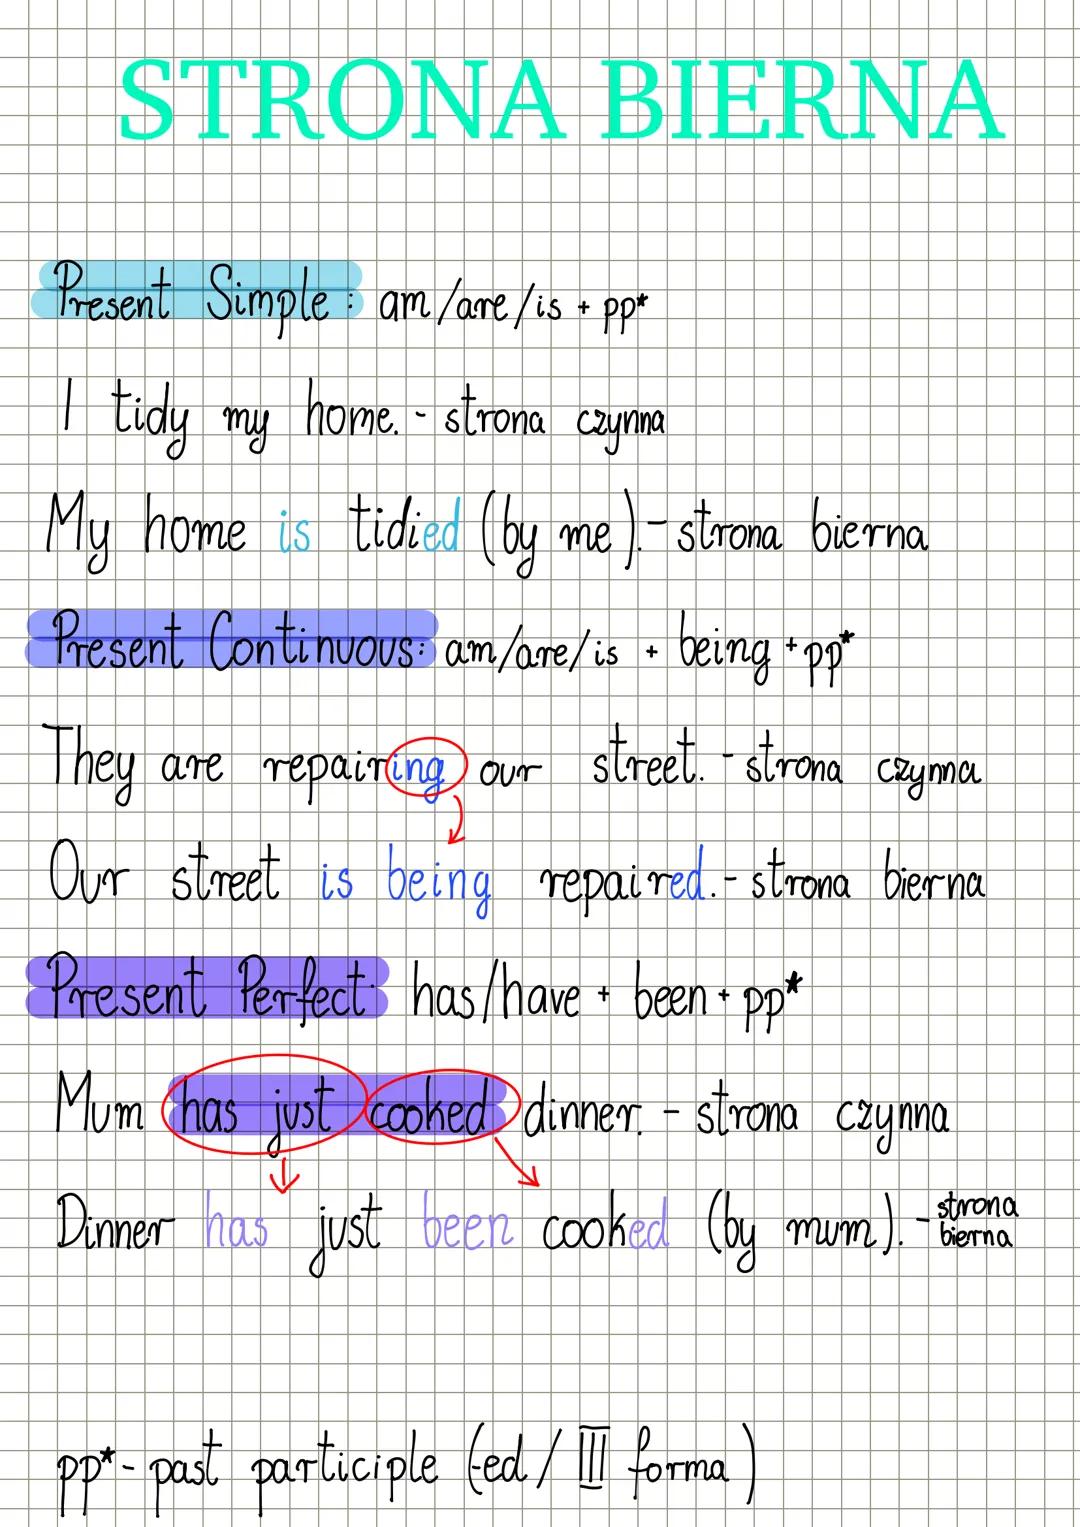 STRONA BIERNA
Present Simple: am/are/is + pp*
I tidy my home. - strona czynna
My home is tidied (by me). - strona bierna
Present Continuous: am/are/is + being + pp*
They are repairing our street. - strona czynna
Our street is being repaired. - strona bierna
Present Perfect: has/have + been + pp*
Mum has just cooked dinner. - strona czynna
Dinner has just been cooked (by mum). - strona bierna
pp* - past participle (-ed / III forma)